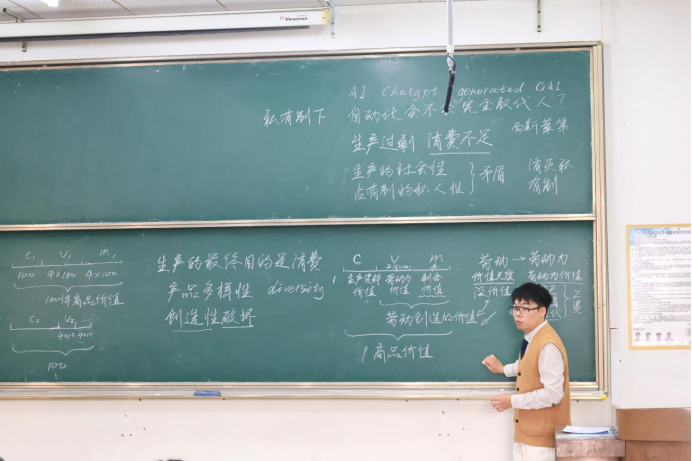 AI Chatgpt generated
私有制下 自动化会不会完全取代人？
生产过剩 消费不足 西斯蒙第
生产的社会性
占有制的私人性
矛盾
消灭私
有制
C₁ V₁ m₁
100 4×100 4×100
100件商品价值
C₂ V₂
100
生产的最终目的是消费
产品多样性 diversity
创造性破坏
C V m
生产资料 劳动力 剩余
价值 价值 价值
劳动创造的价值
1商品价值
劳动 → 劳动力
价值尺度 劳动力价值
没价值